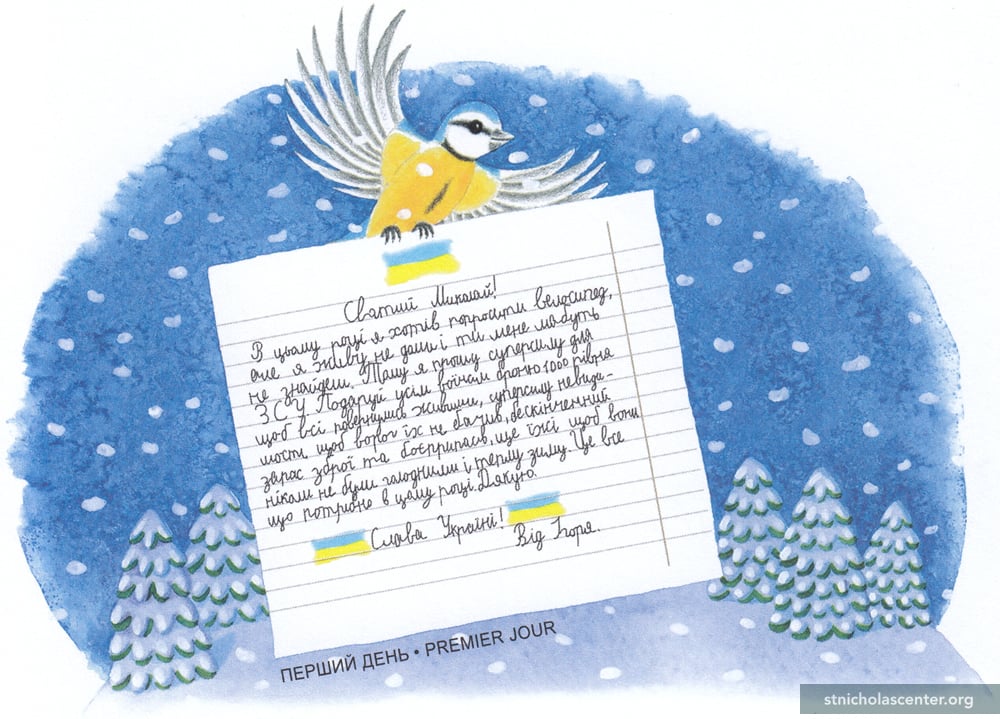 Святий Миколай!
В цьому році я хотів попросити велосипед,
але я живу не дома і ти мене мабуть
не знайдеш. Тому я прошу суперсилу для
ЗСУ Подаруй усім воїнам броню 1000 рівня
щоб всі повернулись живими, суперсилу невиди-
мости щоб ворог їх не бачив, безкінченний
запас зброї та боєприпасів, ще їжі щоб вони
ніколи не були голодними і теплу зиму. Це все
що потрібно в цьому році. Дякую.
Слава Україні!
Від Ігоря
ПЕРШИЙ ДЕНЬ • PREMIER JOUR
stnicholascenter.org